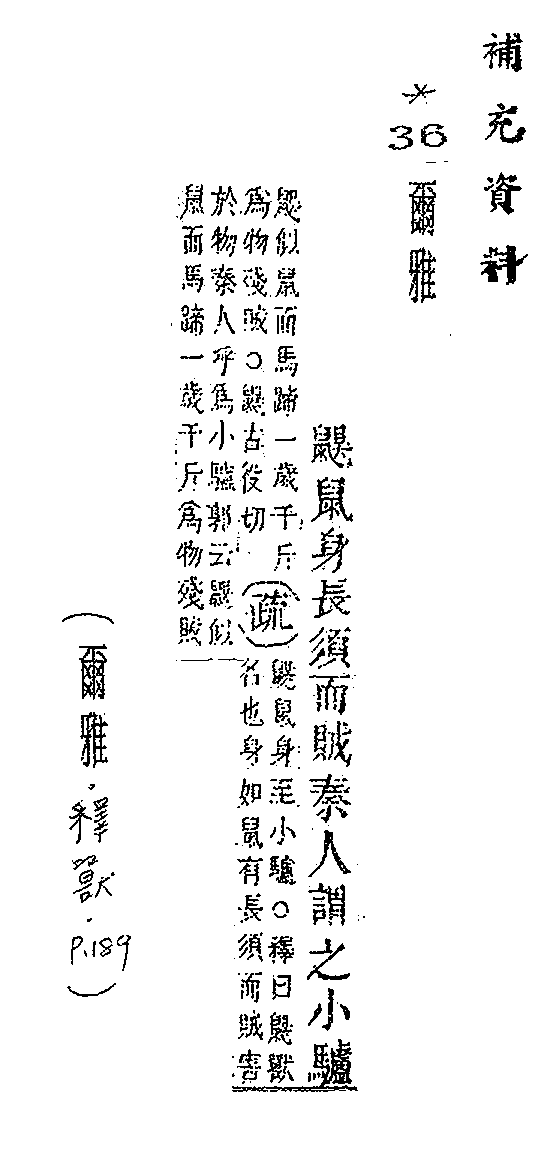 補充資料
*
36
爾雅
鼳鼠身長須而賊秦人謂之小驢
鼳似鼠而馬蹄一歲千斤
爲物殘賊○鼳古役切
(疏)
鼳鼠身至小驢○釋曰鼳獸
名也身如鼠有長須而賊害
於物秦人乎爲小驢郭云鼳似
鼠而馬蹄一歲千斤爲物殘賊
(爾雅·釋獸·P.189)